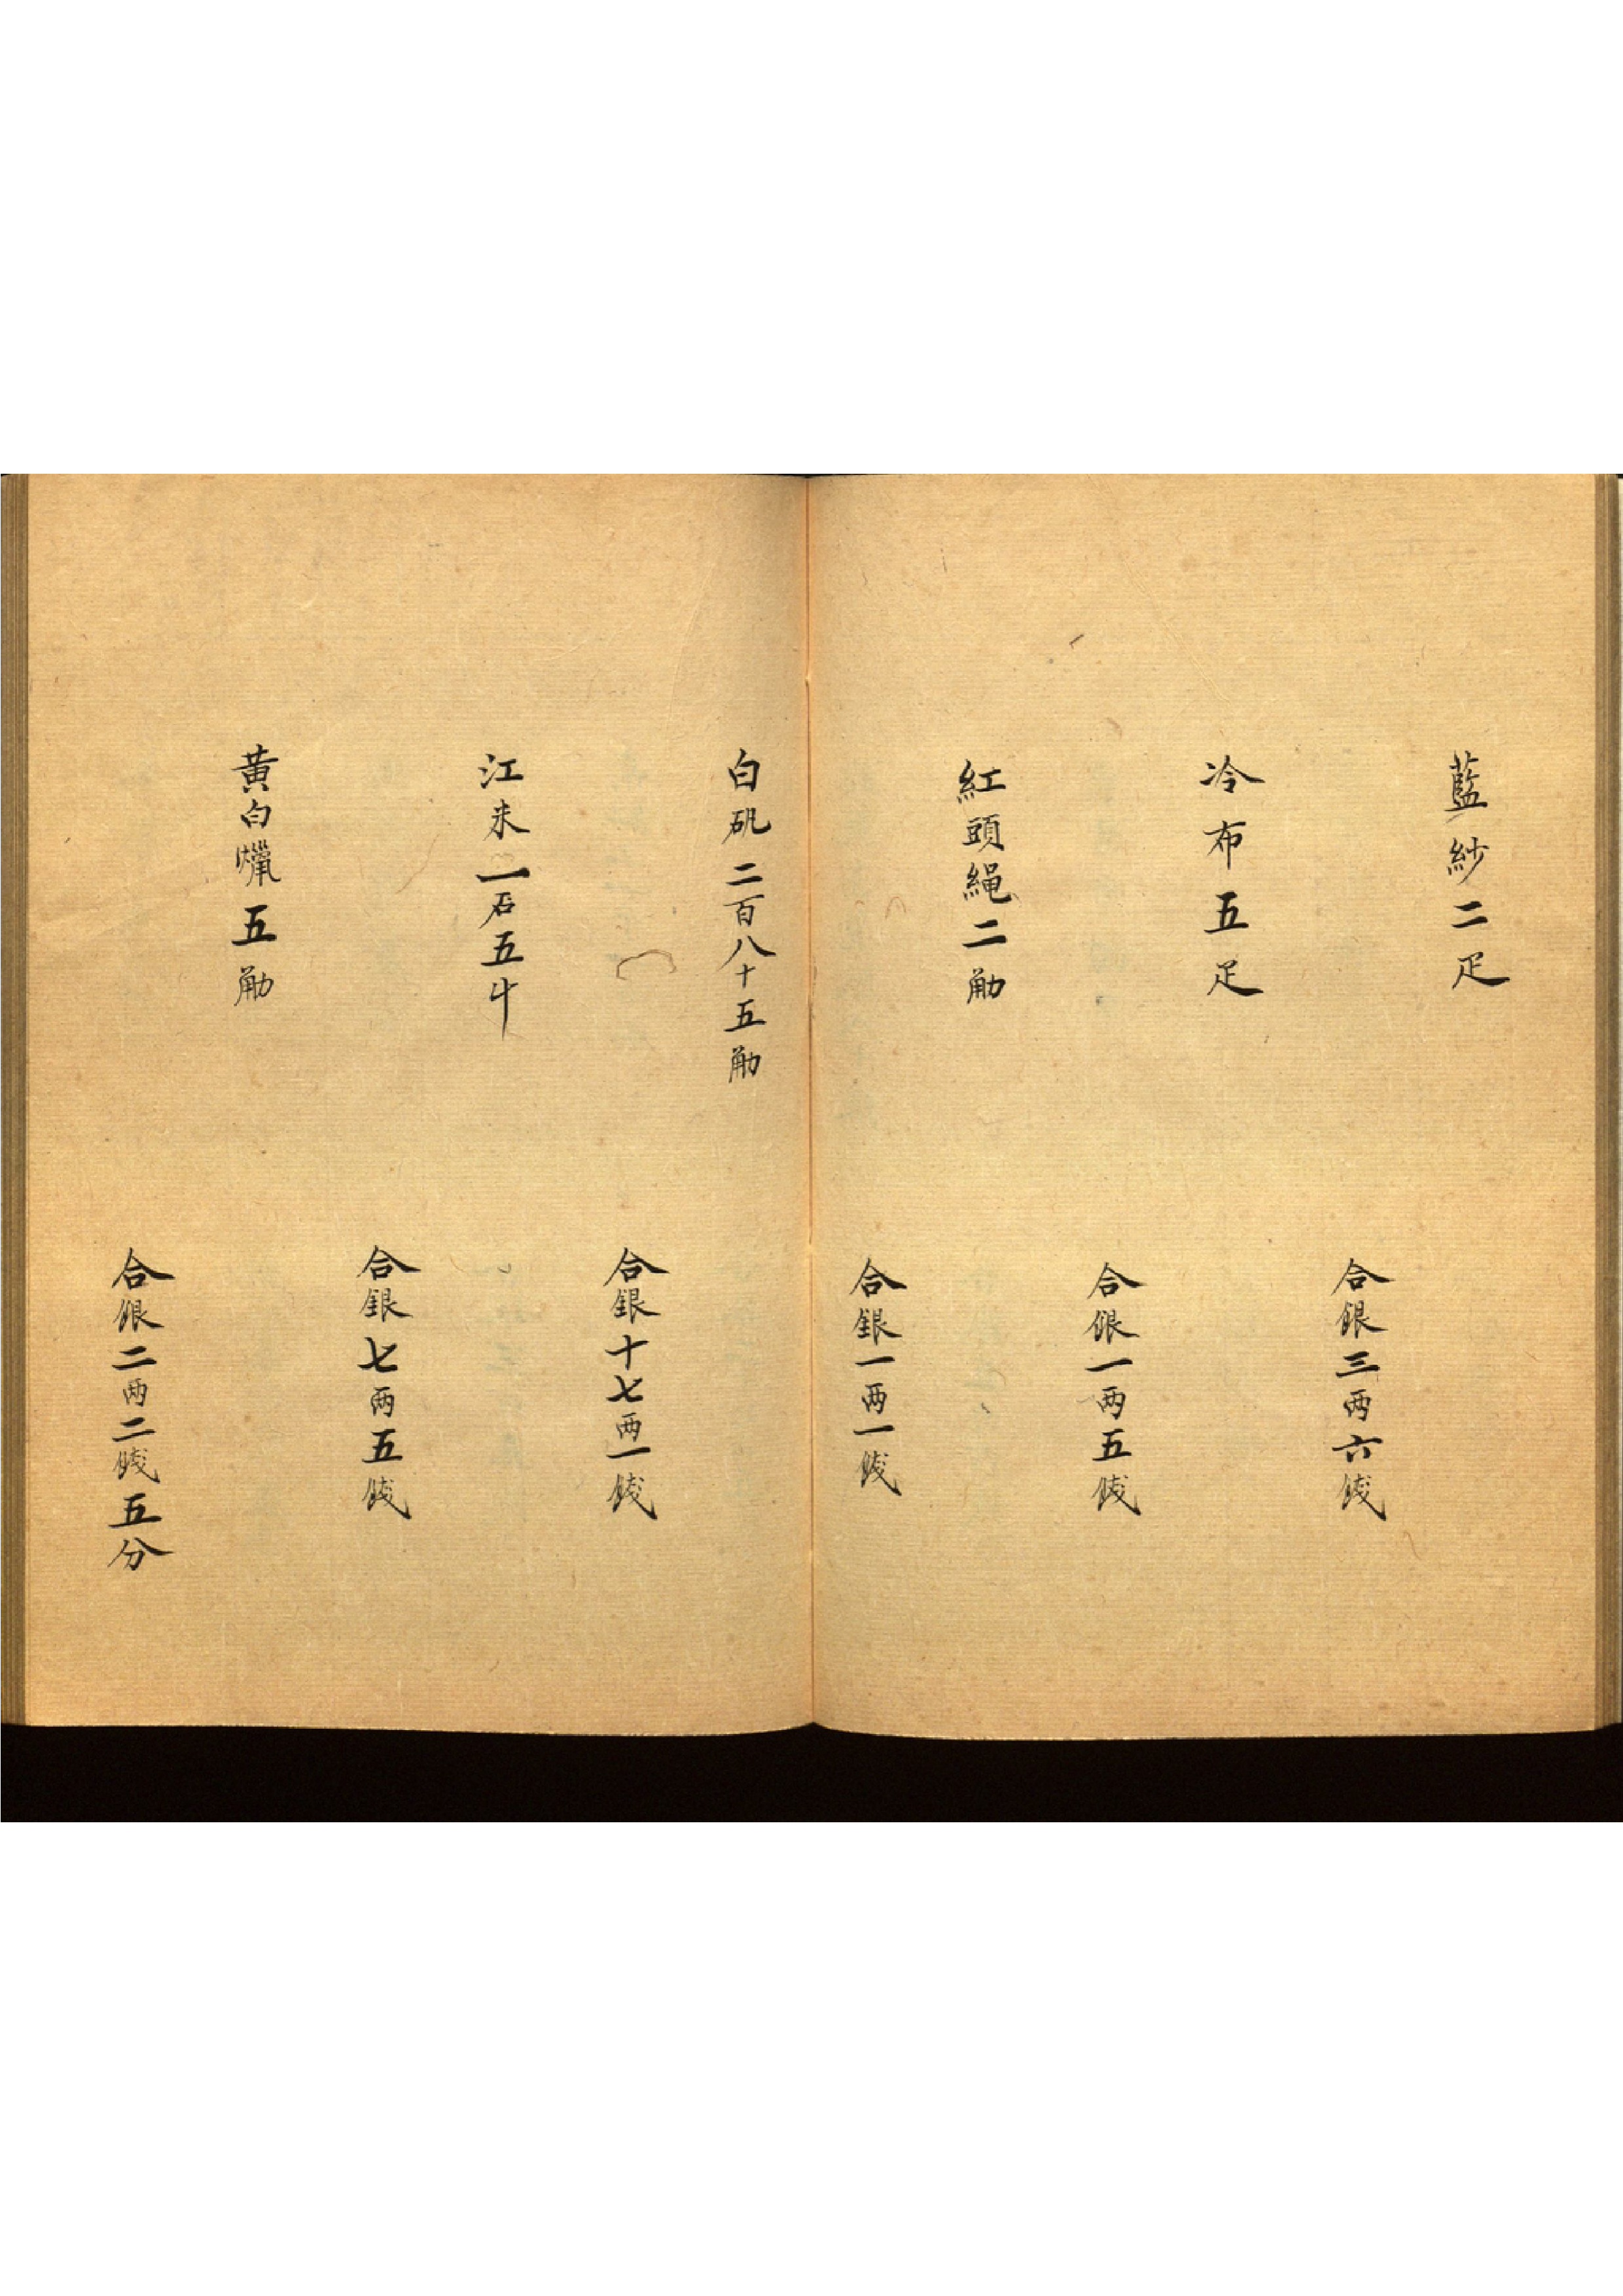 藍紗二疋
合銀三两六錢
冷布五疋
合銀一两五錢
紅頭繩二觔
合銀一两一錢
白矾二百八十五觔
合銀十七两一錢
江米一石五斗
合銀七两五錢
黃白蠟五觔
合銀二两二錢五分